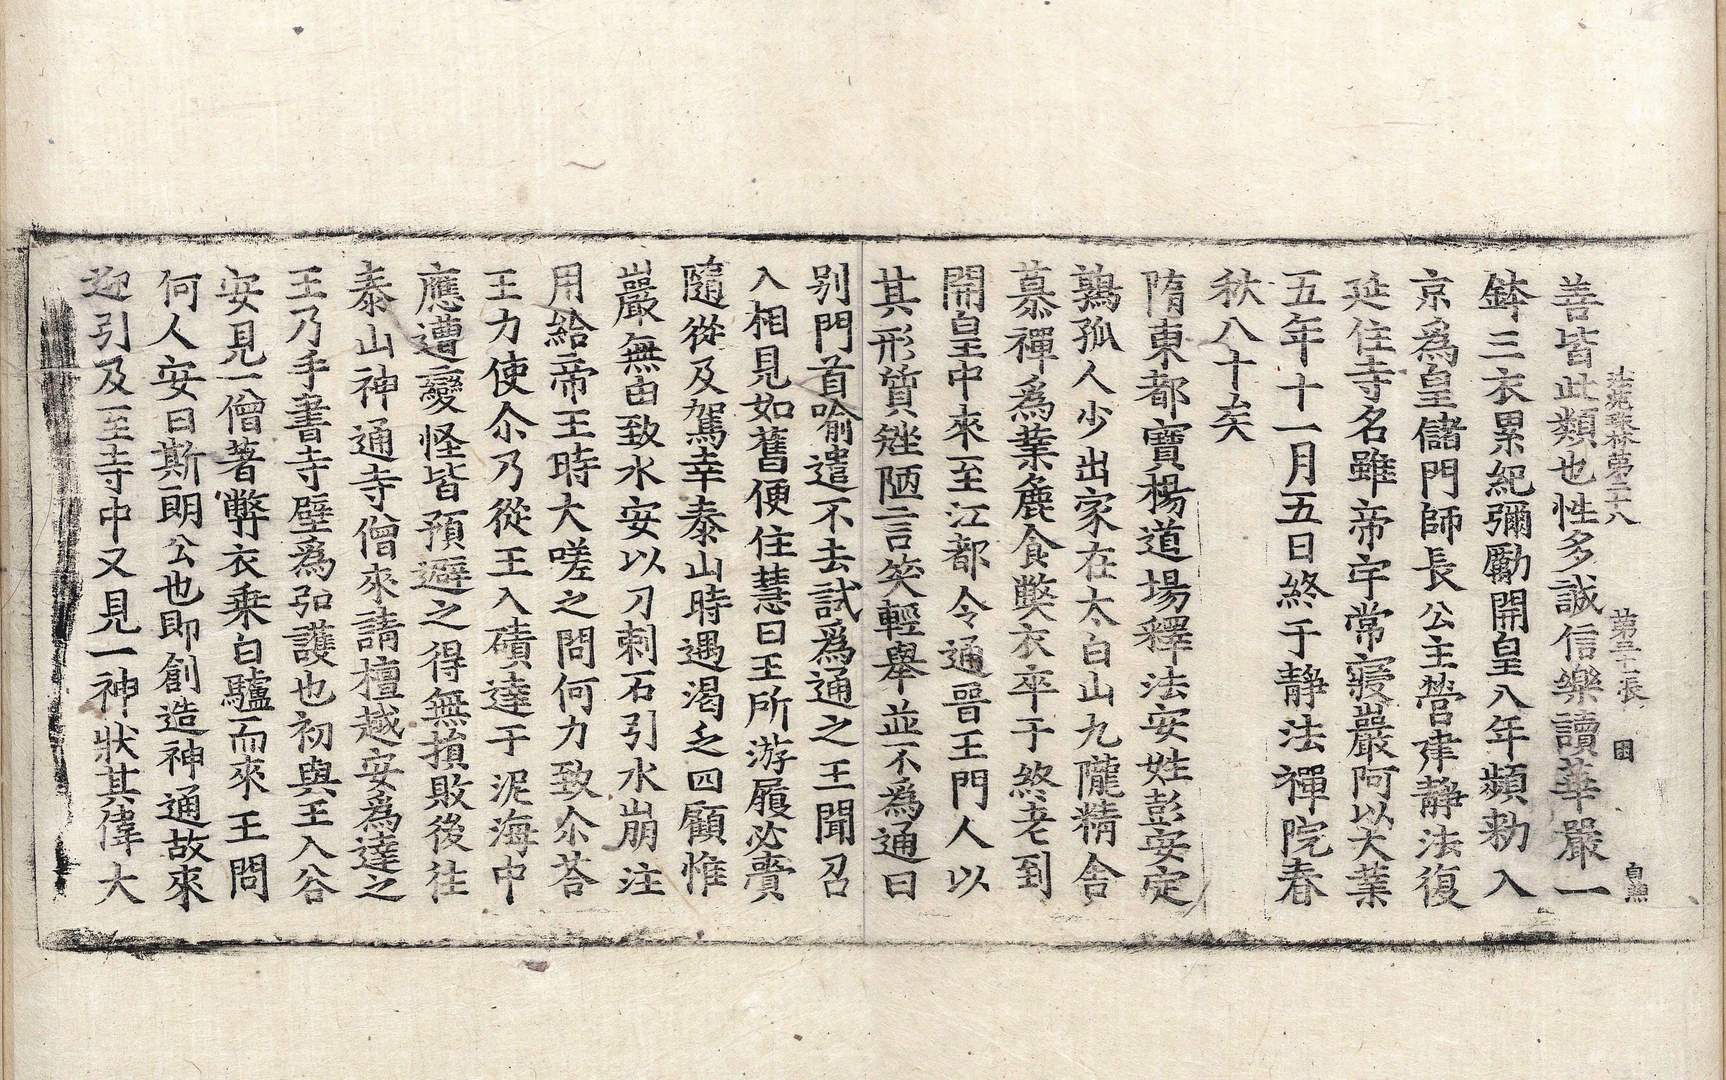 法苑珠林第二十八 第三十張 困
善皆此類也性多誠信樂讀華嚴一
鉢三衣累紀彌勵開皇八年頻勑入
京爲皇儲門師長公主營建靜法復
延住寺名雖帝宇常寢嚴阿以大業
五年十一月五日終于靜法禪院春
秋八十矣
隋東都寶楊道場釋法安姓彭安定
鶉孤人少出家在太白山九隴精舍
慕禪爲業麁食弊衣卒于終老到
開皇中來至江都令通晉王門人以
其形質矬陋言笑輕舉並不為通日
別門首喻遣不去試爲通之王聞召
入相見如舊便住慧日王所游履必賷
隨從及駕幸泰山時遇渴乏四顧惟
巖無由致水安以刀刺石引水崩注
用給帝王時大嗟之問何力致尒荅
王力使尒乃從王入磧達于泥海中
應遭變怪皆預避之得無損敗後往
泰山神通寺僧來請檀越安為達之
王乃手書寺壁爲弘護也初與王入谷
安見一僧著弊衣乗白驢而來王問
何人安曰斯朗公也即創造神通故來
迎引及至寺中又見一神狀其偉大